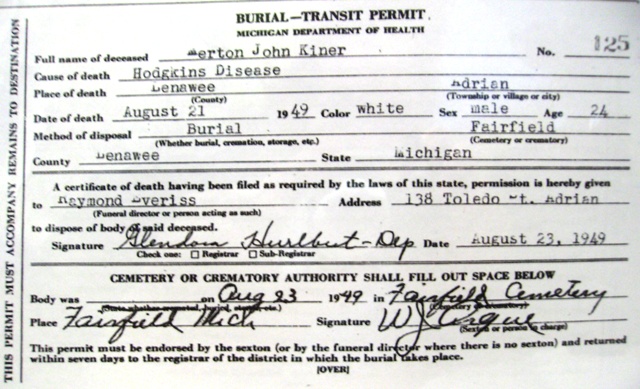 BURIAL—TRANSIT PERMIT
MICHIGAN DEPARTMENT OF HEALTH
THIS PERMIT MUST ACCOMPANY REMAINS TO DESTINATION
Full name of deceased Merton John Kiner No. 125
Cause of death Hodgkins Disease
Place of death Lenawee Adrian
(County) (Township or village or city)
Date of death August 21 1949 Color white Sex male Age 24
Method of disposal Burial Fairfield
(Whether burial, cremation, storage, etc.) (Cemetery or crematory)
County Lenawee State Michigan
A certificate of death having been filed as required by the laws of this state, permission is hereby given
to Raymond Everiss Address 138 Toledo St. Adrian
(Funeral director or person acting as such)
to dispose of body of said deceased.
Signature Glendora Hurlbut-Dep Date August 23, 1949
Check one: ☐ Registrar ☐ Sub-Registrar
CEMETERY OR CREMATORY AUTHORITY SHALL FILL OUT SPACE BELOW
Body was on Aug 23 1949 in Fairfield Cemetery
(State whether cremated, buried, stored, etc.) (Cemetery or crematory)
Place Fairfield Mich Signature W J
(Sexton or person in charge)
This permit must be endorsed by the sexton (or by the funeral director where there is no sexton) and returned
within seven days to the registrar of the district in which the burial takes place.
[OVER]